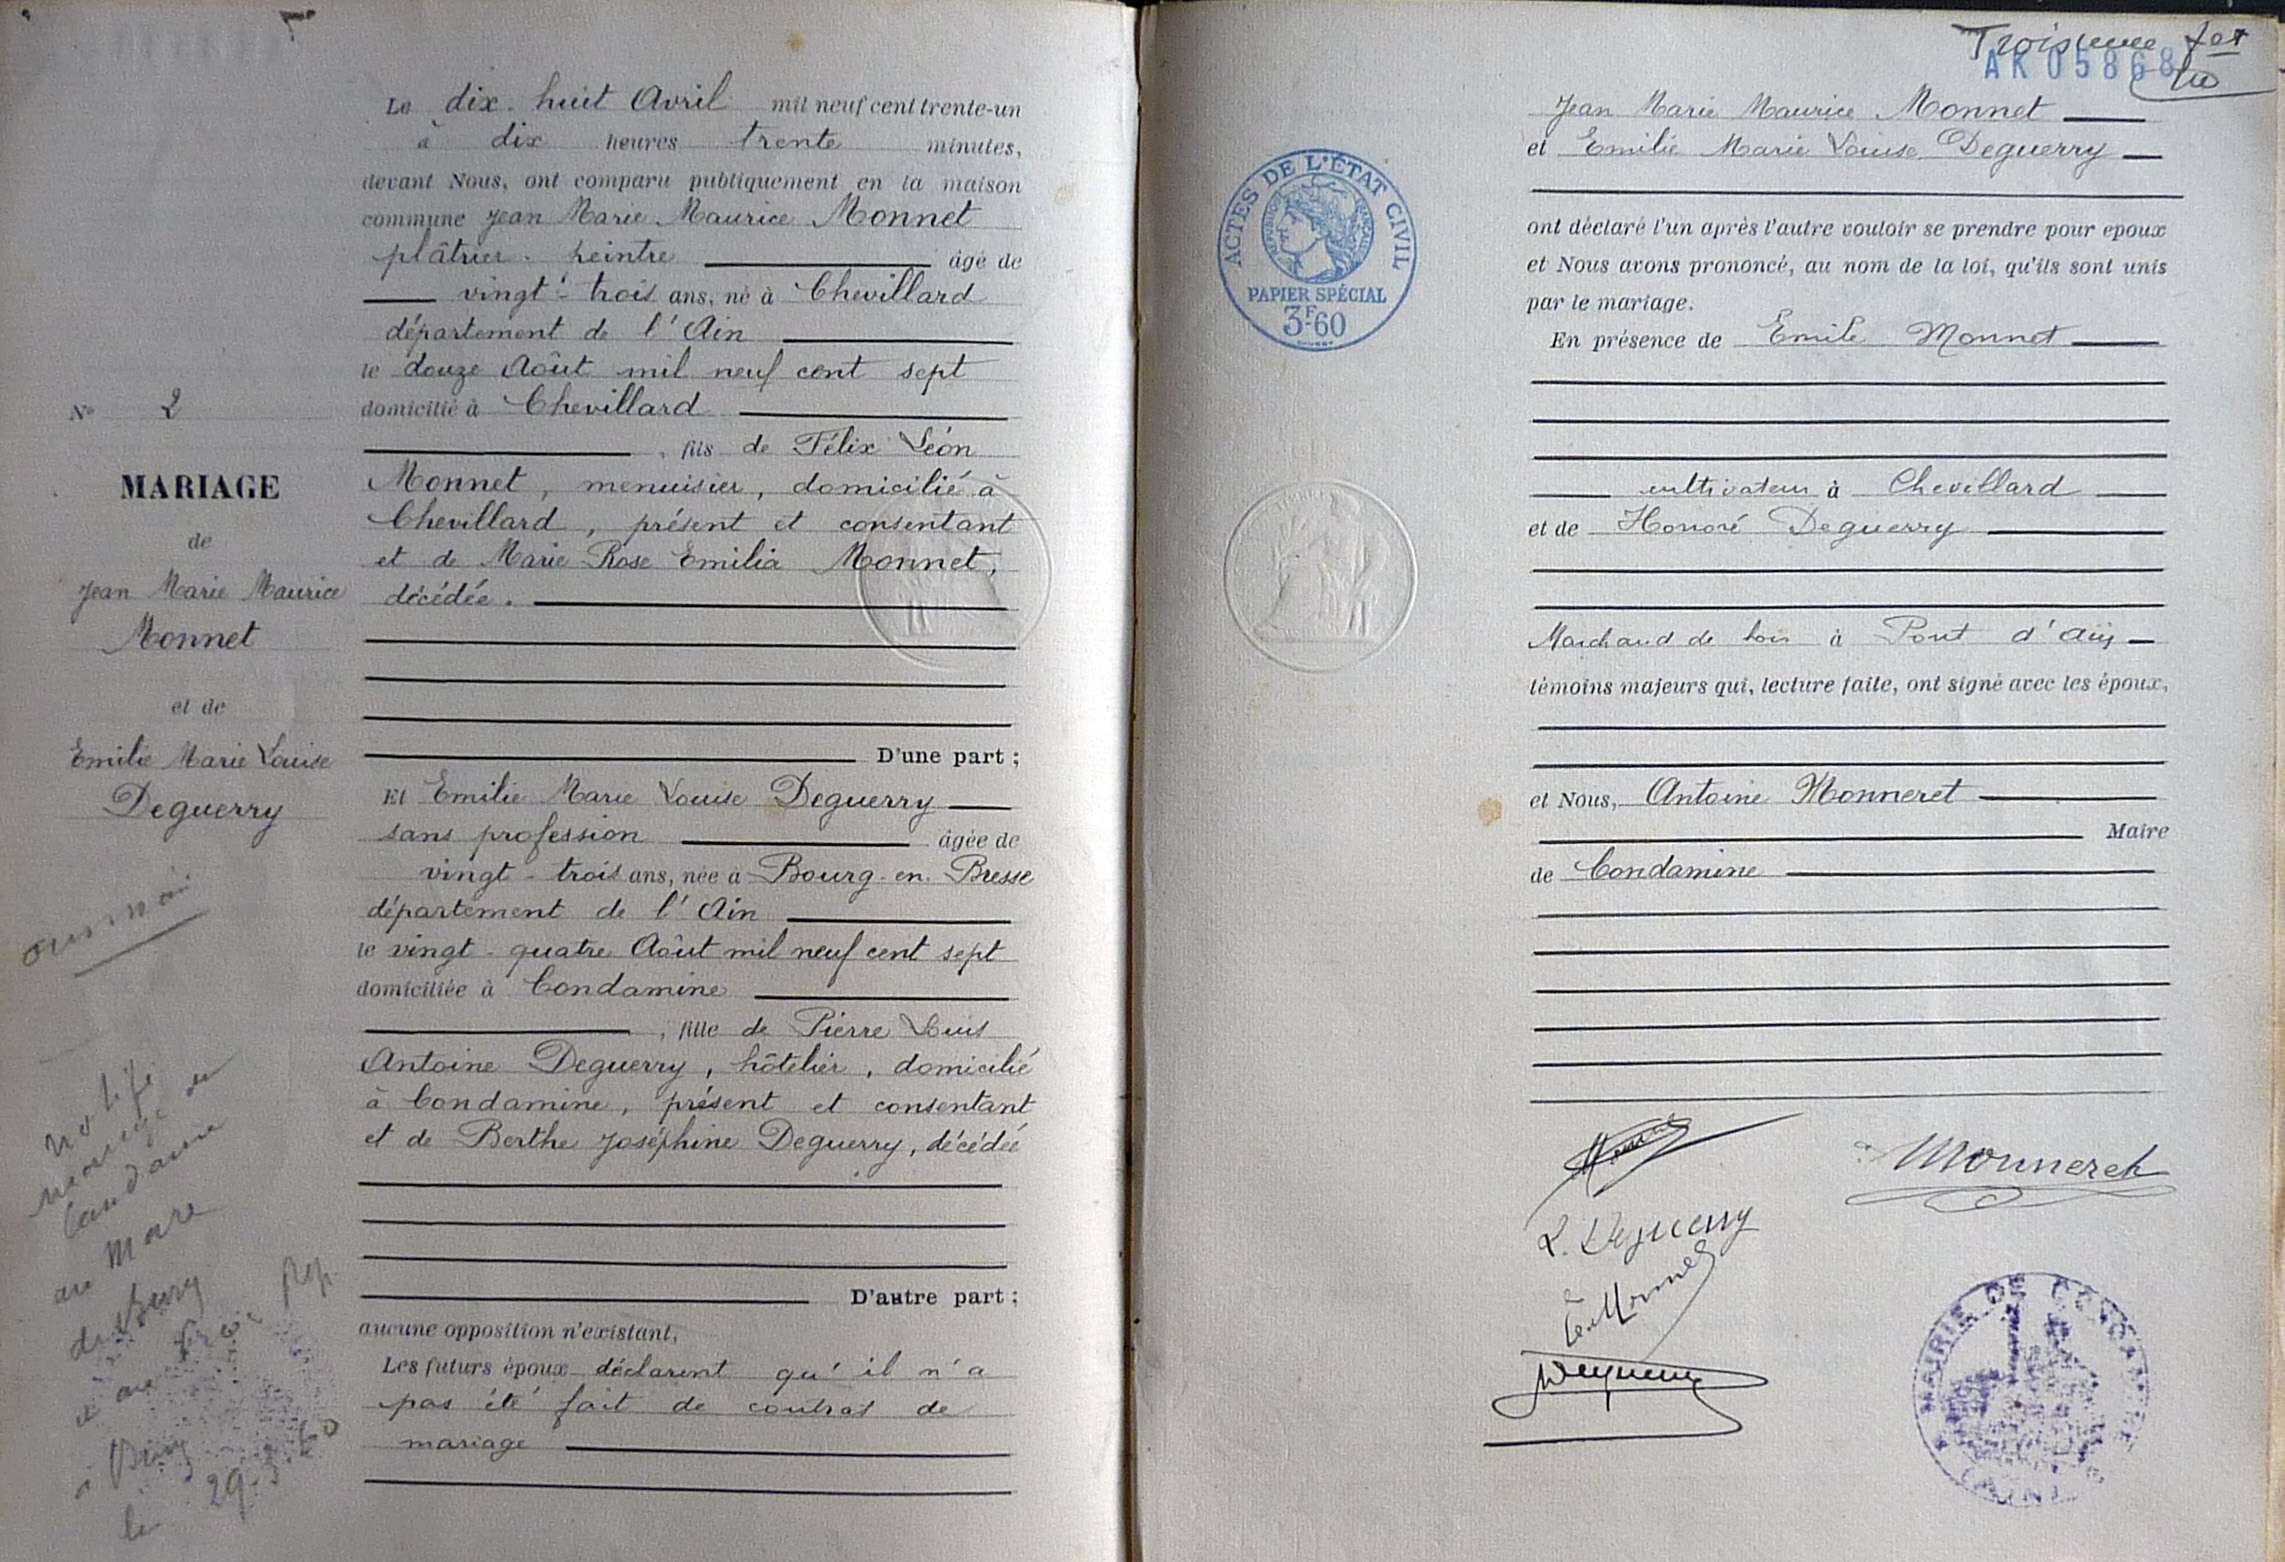 Le dix-huit Avril mil neuf cent trente-un
à dix heures trente minutes,
devant Nous, ont comparu publiquement en la maison
commune Jean Marie Maurice Monnet
plâtrier-peintre âgé de
vingt-trois ans, né à Chevillard
département de l'Ain
le douze Août mil neuf cent sept
domicilié à Chevillard
, fils de Félix Léon
Monnet, menuisier, domicilié à
Chevillard, présent et consentant
et de Marie Rose Emilia Monnet,
décédée.
D'une part ;
Et Emilie Marie Louise Deguerry
sans profession âgée de
vingt-trois ans, née à Bourg-en-Bresse
département de l'Ain
le vingt-quatre Août mil neuf cent sept
domiciliée à Condamine
, fille de Pierre Louis
Antoine Deguerry, hôtelier, domicilié
à Condamine, présent et consentant
et de Berthe Joséphine Deguerry, décédée
D'autre part ;
aucune opposition n'existant,
Les futurs époux déclarent qu'il n'a
pas été fait de contrat de
mariage
N° 2
MARIAGE
de
Jean Marie Maurice
Monnet
et de
Emilie Marie Louise
Deguerry
mariage
au Mare
de Bourg
à Bourg
le 29-3-
Troisieme
AK05868
Jean Marie Maurice Monnet
et Emilie Marie Louise Deguerry
ont déclaré l'un après l'autre vouloir se prendre pour epoux
et Nous avons prononcé, au nom de la loi, qu'ils sont unis
par le mariage.
En présence de Emile Monnet
cultivateur à Chevillard
et de Honoré Deguerry
Marchand de bois à Pont d'Ain
témoins majeurs qui, lecture faite, ont signé avec les époux,
et Nous, Antoine Monneret
Maire
de Condamine
ACTES DE L'ÉTAT CIVIL
RÉPUBLIQUE FRANÇAISE
PAPIER SPÉCIAL
3F.60
Monneret
L. Deguerry
Deguerry
MAIRIE DE CONDAMINE
(AIN)